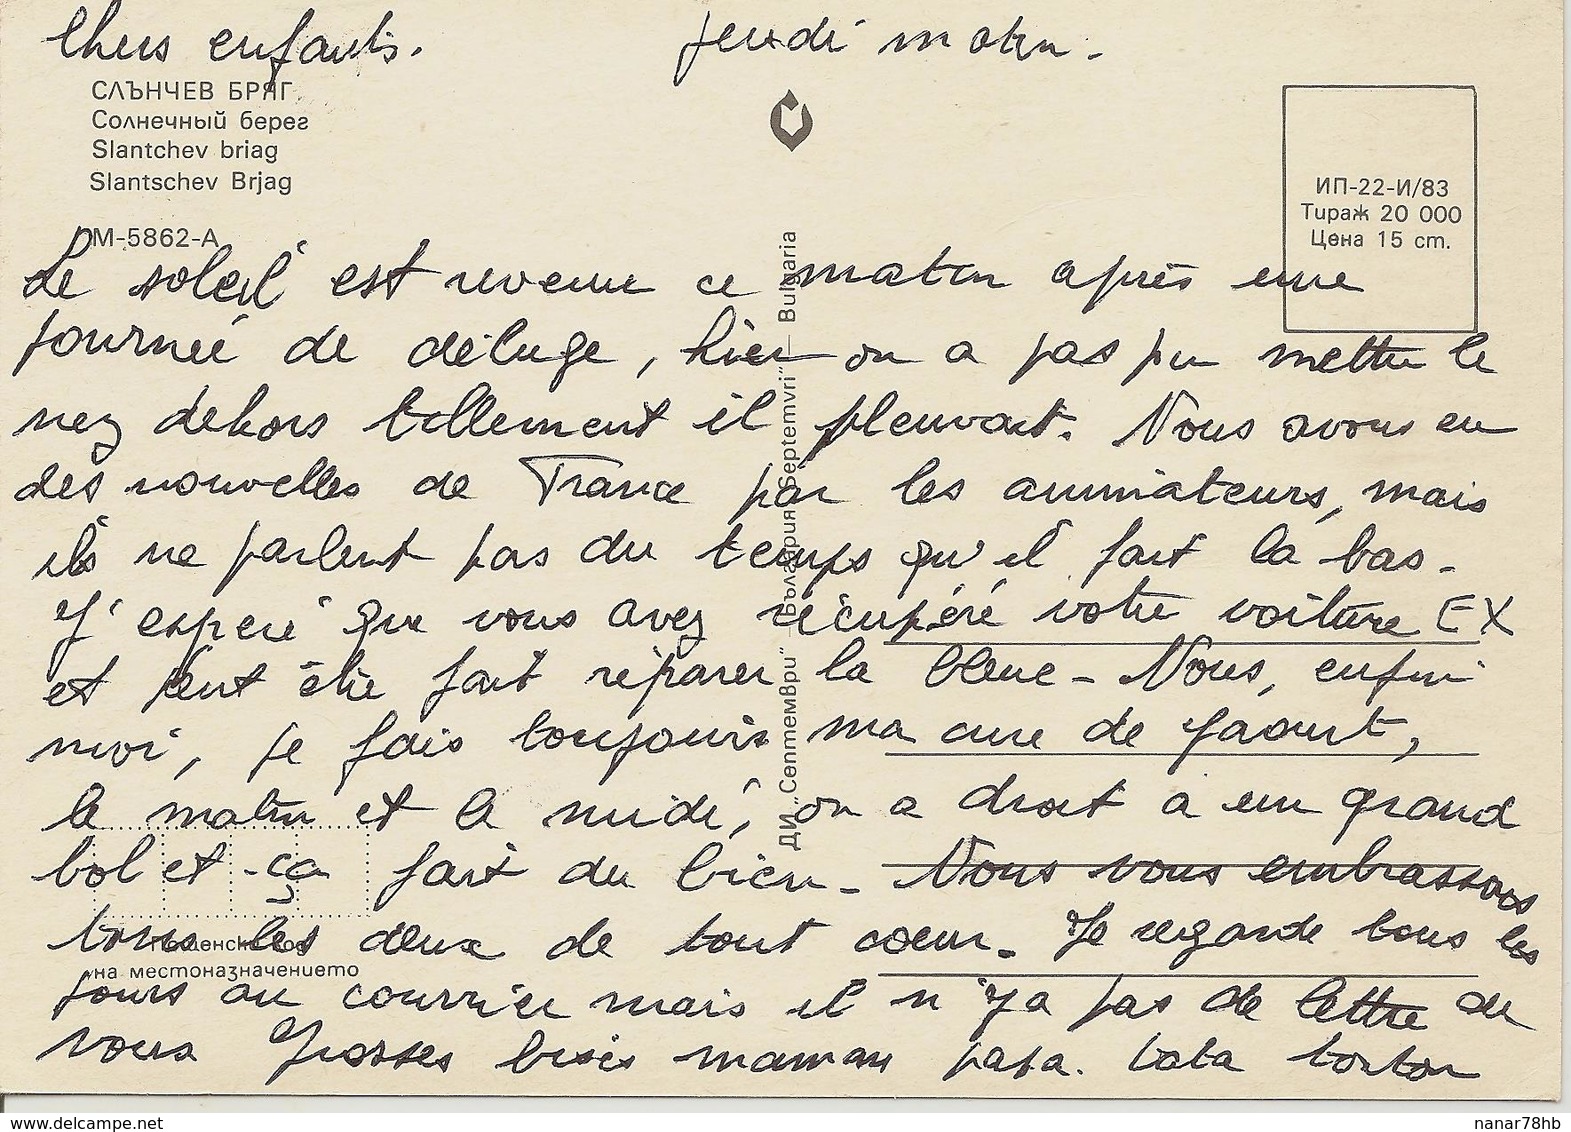 Chers enfants. jeudi matin.
СЛЪНЧЕВ БРЯГ
Солнечный берег
Slantchev briag
Slantschev Brjag
М-5862-А
ИП-22-И/83
Тираж 20 000
Цена 15 ст.
ДИ „Септември" — България
"Septemvri" — Bulgaria
Le soleil est revenu ce matin après une
journée de déluge, hier on a pas pu mettre le
nez dehors tellement il pleuvait. Nous avons eu
des nouvelles de France par les animateurs, mais
ils ne parlent pas du temps qu'il fait là bas -
J'esperé que vous avez récupéré votre voiture EX
et peut être fait réparer la bleue - Nous, enfin
moi, je fais toujours ma cure de yaourt,
le matin et le midi, on a droit a un grand
bol et ça fait du bien - Nous vous embrassons
tous les deux de tout coeur. Je regarde tous les
на местоназначението
jours au courrier mais il n'y a pas de lettre de
vous Grosses bises maman papa. tata tonton
nanar78hb